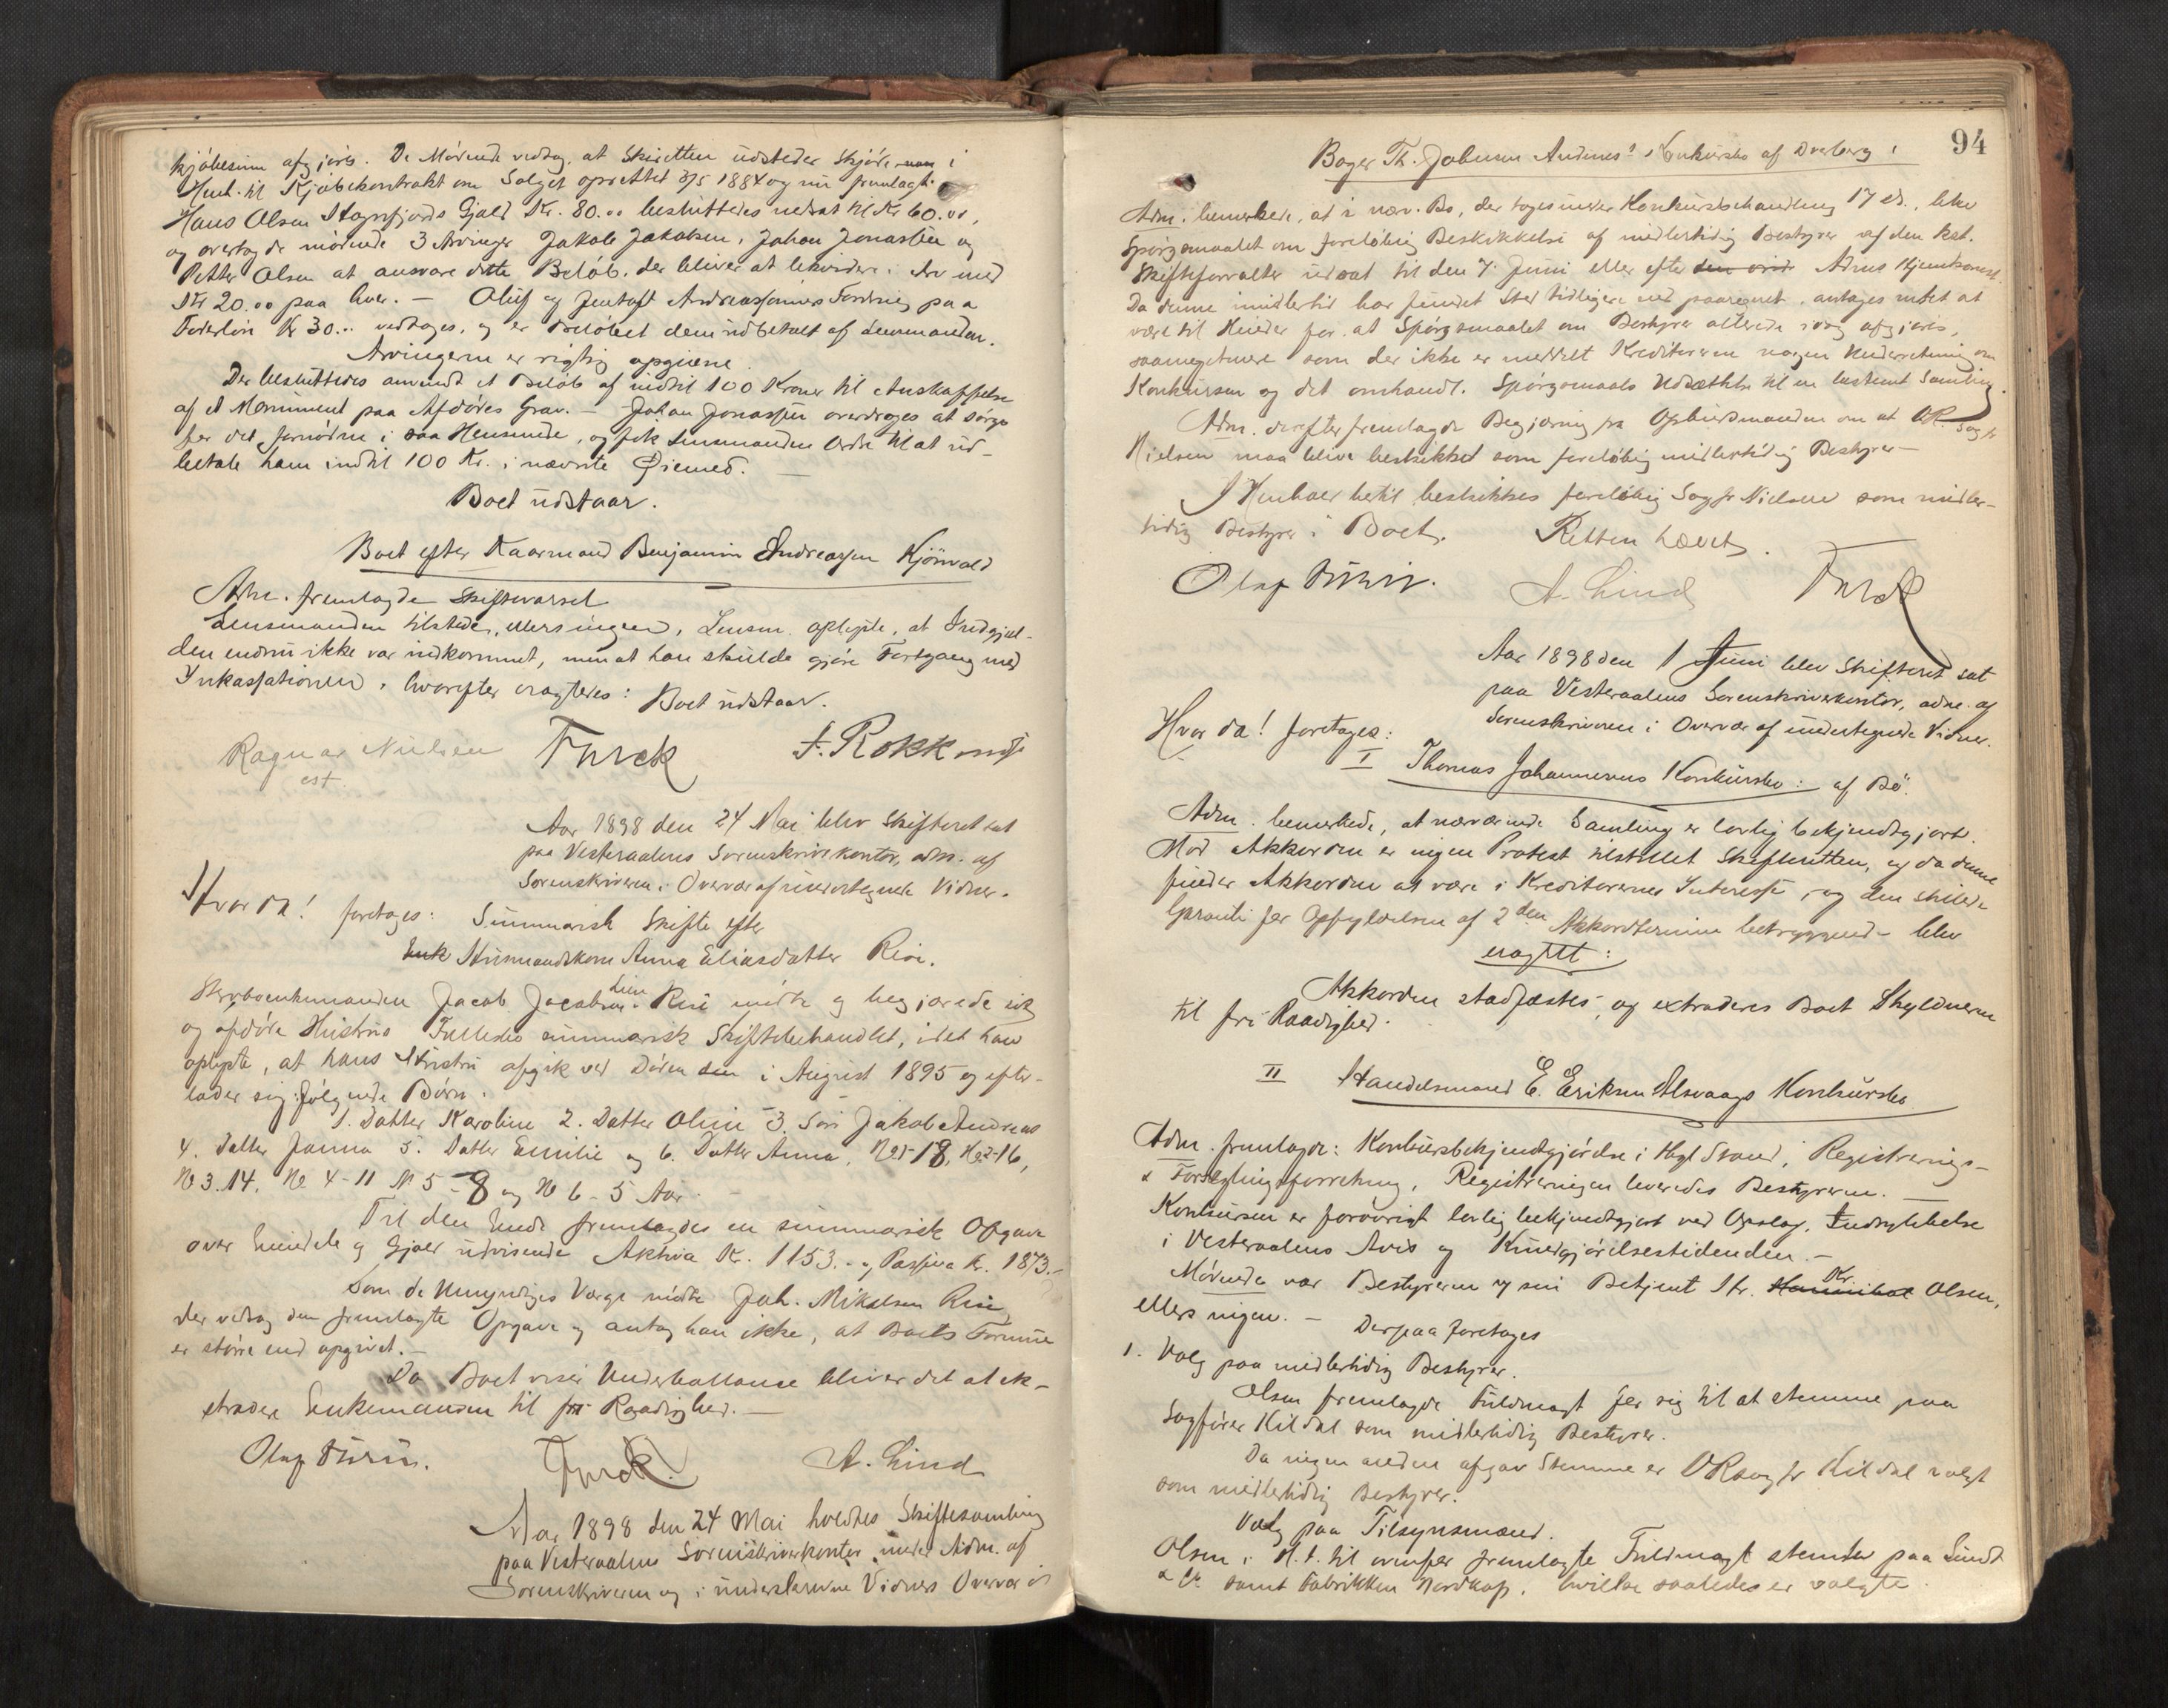 kjöbesum afgjöres. De Mödende vedtog, at Skifteretten udsteder Skjöde i
Henh. til Kjöbekontrakt om Salget oprettet 3/5 1884 og nu fremlagt.
Hans Olsen Stognfjords Gjæld Kr. 80.00 besluttedes nedsat til Kr 60.00,
og overtog de mödende 3 Arvinger Jakob Jakobsen, Johan Jonassen og
Petter Olsen at ansvare dette Belöb, der bliver at likvidere i Arv med
Kr 20.00 paa hver. — Oluf og Jentoft Andreassens Fordring paa
Foderlön Kr 30.. vedtoges, og er Belöbet dem udbetalt af Lensmanden.
Arvingerne er rigtig opgivne.
Der besluttedes anvendt et Belöb af indtil 100 Kroner til Anskaffelse
af et Monument paa Afdödes Grav. — Johan Jonassen overdroges at sörge
for det fornödne i saa Henseende, og fik Lensmanden Ordre til at ud-
betale ham indtil 100 Kr. i nævnte Öiemed. —
Boet udstaar.
Boet efter Kaarmand Benjamin Andreassen Kjönvold
Adm. fremlagde Skiftevarsel
Lensmanden tilstede, ellers ingen. Lensm. oplyste, at Indgjæl-
den endnu ikke var indkommet, men at han skulde gjöre Fortgang med
Inkassationen, hvorefter eragtedes: Boet udstaar.
Ragnar Nielsen Turck F. Rokkones
est.
Aar 1898 den 24 Mai blev Skifteret sat
paa Vesteraalens Sorenskriverkontor, adm. af
Sorenskriveren i Overvær af undertegnede Vidner.
Hvor da! foretages: Summarisk Skifte efter
Enk Husmandskone Anna Eliasdatter Rise.
Strandbo enkemanden Jacob Jacobsen Rise mödte og begjærede sit
og afdöde Hustrus Fællesbo summarisk Skiftebehandlet, idet han
oplyste, at hans Hustru afgik ved Döden den i August 1895 og efter-
lader sig fölgende Börn:
1. Datter Karoline 2. Datter Oline 3. Sön Jakob Andreas
4. Datter Janna 5. Datter Emilie og 6. Datter Anna. No 1-18, No 2-16,
No 3.14, No 4-11 No 5-8 og No 6-5 Aar.
Til den Ende fremlagdes en summarisk Opgave
over Eiendele og Gjæld udvisende Aktiva Kr. 1153.- og Passiva Kr. 1873.-
Som de Umyndiges Værge mödte Joh. Mikalsen Rise,
der vedtog den fremlagte Opgave og antog han ikke, at Boets Formue
er större end opgivet. —
Da Boet viser Underballance bliver det at ek-
stradere Enkemanden til fri Raadighed. —
Olaf Turck A. Lind
Aar 1898 den 24 Mai holdtes Skiftesamling
paa Vesteraalens Sorenskriverkontor under Adm. af
Sorenskriveren og i underskrevne Vidners Overvær i
94
Bager Th. Johnsen Andenes' Konkursbo af Dverberg:
Adm. bemerkede, at i nærv. Bo, der toges under Konkursbehandling 17 ds., blev
Spörgsmaalet om forelöbig Beskikkelse af midlertidig Bestyrer af den kst.
Skifteforvalter udsat til den 7. Juni eller efter den ord. Adms Hjemkomst
Da denne imidlertid har fundet Sted tidligere end paaregnet, antages intet at
være til Hinder for at Spörgsmaalet om Bestyrer allerede idag afgjöres,
saameget mere som der ikke er meddelt Kreditorerne nogen Underretning om
Konkursen og det omhandl. Spörgsmaals Udsættelse til en bestemt Samling.
Adm. derefter fremlagde Begjæring fra Opbudsmanden om at OR. Sagf
Nielsen maa blive beskikket som forelöbig midlertidig Bestyrer —
I Henhold hertil beskikkes forelöbig Sagfr Nielsen som midler-
tidig Bestyrer i Boet. Retten hævet.
Olaf A. Lind Turck
Aar 1898 den 1 Juni blev Skifteret sat
paa Vesteraalens Sorenskriverkontor, adm. af
Sorenskriveren i Overvær af undertegnede Vidner.
Hvor da! foretages:
I Thomas Johannesens Konkursbo: af Bö.
Adm. bemerkede, at nærværende Samling er lovlig bekjendtgjort.
Mod Akkorden er ingen Protest tilstillet Skifteretten, og da denne
finder Akkorden at være i Kreditorernes Interesse, og den stillede
Garanti for Opfyldelsen af 2den Akkordtermin betryggende blev
eragtet:
Akkorden stadfæstes, og extraderes Boet Skyldneren
til fri Raadighed.
II Handelsmand E. Eriksen Alsvaags Konkursbo
Adm. fremlagde: Konkursbekjendtgjörelse i Hgl Stand, Registrerings-
& Forseglingsforretning. Registreringen leveredes Bestyreren. —
Konkursen er forövrigt lovlig bekjendtgjort ved Opslag, Indrykkelse
i Vesteraalens Avis og Kundgjörelsestidenden. —
Mödende var Bestyreren og sin Betjent Hr. Hannibal Kr. Olsen,
ellers ingen. — Derpaa foretages
1. Valg paa midlertidig Bestyrer.
Olsen fremlagde Fuldmagt for sig til at stemme paa
Sagförer Kildal som midlertidig Bestyrer.
Da ingen anden afgav Stemme er ORsagfr Kildal valgt
som midlertidig Bestyrer.
Valg paa Tilsynsmænd.
Olsen i H.t. til ovenfor fremlagte Fuldmagt stemte paa Lindt
& Co samt Fabrikken Nordkap, hvilke saaledes er valgte